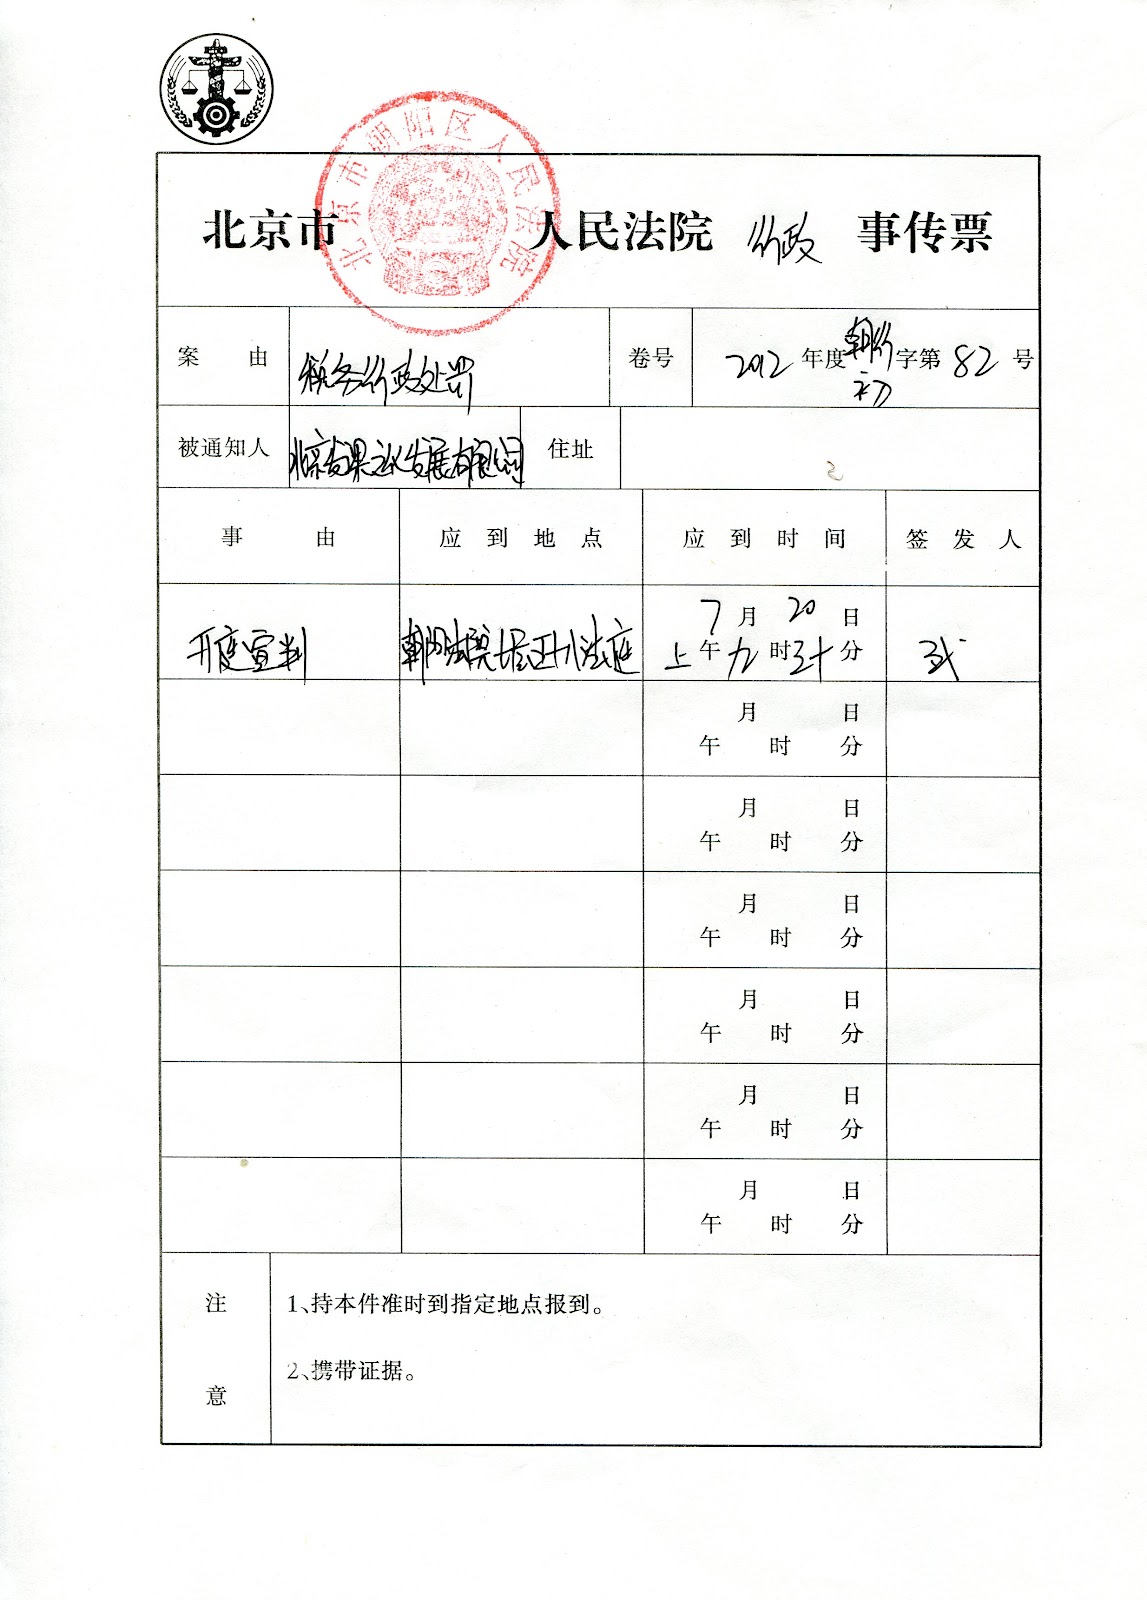 北京市朝阳区人民法院
北京市 人民法院 行政 事传票
案 由 税务行政处罚 卷号 2012 年度 朝行初 字第 82 号
被通知人 北京发课文化发展有限公司 住址
事 由 应 到 地 点 应 到 时 间 签 发 人
开庭宣判 朝阳法院 法庭 7 月 20 日
上 午 九 时 三十 分
月 日
午 时 分
月 日
午 时 分
月 日
午 时 分
月 日
午 时 分
月 日
午 时 分
月 日
午 时 分
注 意
1、持本件准时到指定地点报到。
2、携带证据。